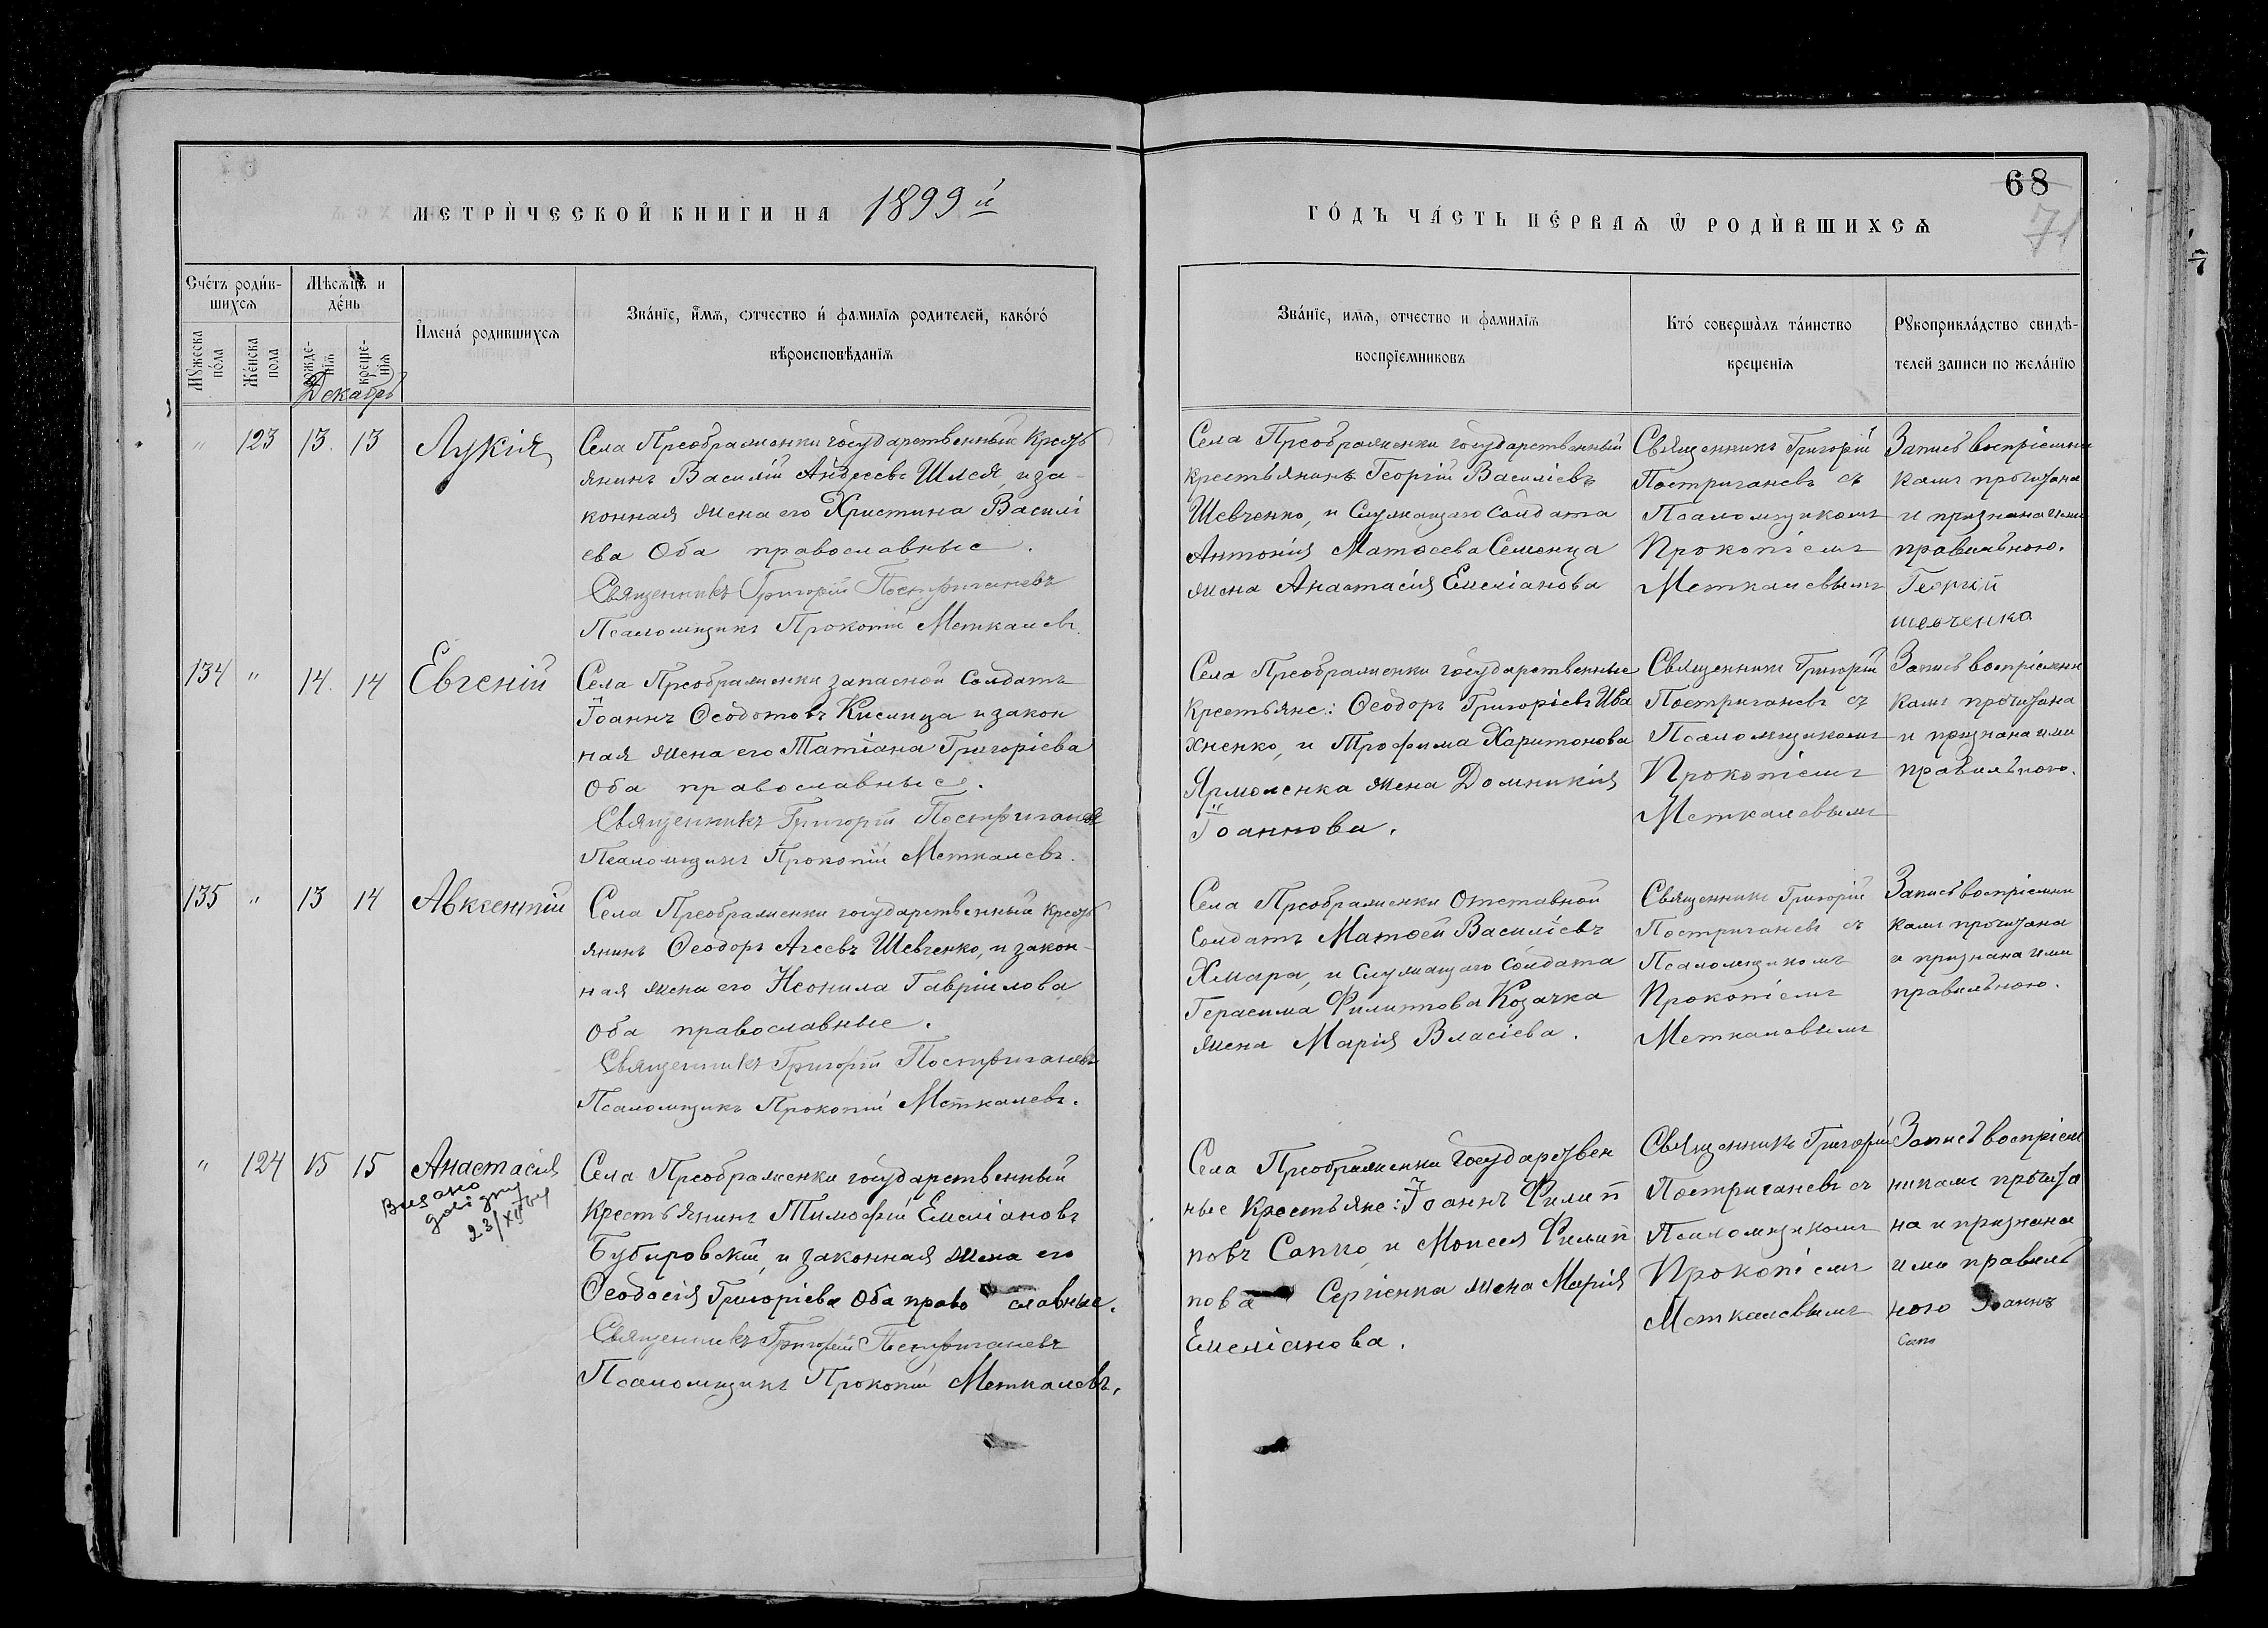 68
71
МЕТРИЧЕСКОЙ КНИГИ НА 1899й
ГОДЪ ЧАСТЬ ПЕРВАЯ Ѿ РОДИВШИХСЯ
Счетъ родив-
шихся
Мѣсяцъ и
день
Мужеска
пола
Женска
пола
рожде-
нія
креще-
нія
Имена родившихся
Званіе, имя, отчество и фамилія родителей, какого
вѣроисповѣданія
Званіе, имя, отчество и фамилія
воспріемниковъ
Кто совершалъ таинство
крещенія
Рукоприкладство свидѣ-
телей записи по желанію
Декабрь
" 123 13. 13 Лукія
Села Преображенки государственный Кресть
янинъ Василій Андреевъ Шлея, и за-
конная жена его Христина Василі
ева Оба православные.
Священникъ Григорій Постриганевъ
Псаломщикъ Прокопій Меткалевъ.
Села Преображенки государственный
крестьянинъ Георгій Василіевъ
Шевченко, и Служащаго Солдата
Антонія Матѳеева Семенца
жена Анастасія Емеліанова
Священникъ Григорій
Постриганевъ съ
Псаломщикомъ
Прокопіемъ
Меткалевымъ
Запись воспріемни
ками прочитана
и признана ими
правильною.
Георгій
шевченко
134 " 14. 14 Евгеній
Села Преображенки запасной Солдатъ
Іоаннъ Ѳеодотовъ Кислица и закон
ная жена его Татіана Григоріева
Оба православные.
Священникъ Григорій Постриганевъ
Псаломщикъ Прокопій Меткалевъ.
Села Преображенки государственные
Крестьяне: Ѳеодоръ Григоріевъ Ива
хненко, и Трофима Харитонова
Ярмоленка жена Домникія
Іоаннова.
Священникъ Григорій
Постриганевъ съ
Псаломщикомъ
Прокопіемъ
Меткалевымъ
Запись воспріемни
ками прочитана
и признана ими
правильною.
135 " 13 14 Авксентій
Села Преображенки государственный кресть
янинъ Ѳеодоръ Агеевъ Шевченко, и закон-
ная жена его Неонила Гавріилова
Оба православные.
Священникъ Григорій Постриганевъ
Псаломщикъ Прокопій Меткалевъ.
Села Преображенки Отставной
Солдатъ Матѳей Василіевъ
Хмара, и Служащаго Солдата
Герасима Филиппова Козачка
жена Марія Власіева.
Священникъ Григорій
Постриганевъ съ
Псаломщикомъ
Прокопіемъ
Меткалевымъ
Запись воспріемни
ками прочитана
и признана ими
правильною.
" 124 15 15 Анастасія
Видано
23/XII
Села Преображенки государственный
Крестьянинъ Тимофій Емеліановъ
Бубировскій, и законная жена его
Ѳеодосія Григоріева Оба право славные.
Священникъ Григорій Постриганевъ
Псаломщикъ Прокопій Меткалевъ.
Села Преображенки Государствен
ные Крестьяне: Іоаннъ Филип
повъ Сапко, и Моисея Филип
пова Сергіенка жена Марія
Емеліанова.
Священникъ Григорій
Постриганевъ съ
Псаломщикомъ
Прокопіемъ
Меткалевымъ
Запись воспріем
никами прочита
на и признана
ими правиль
ною Іоаннъ